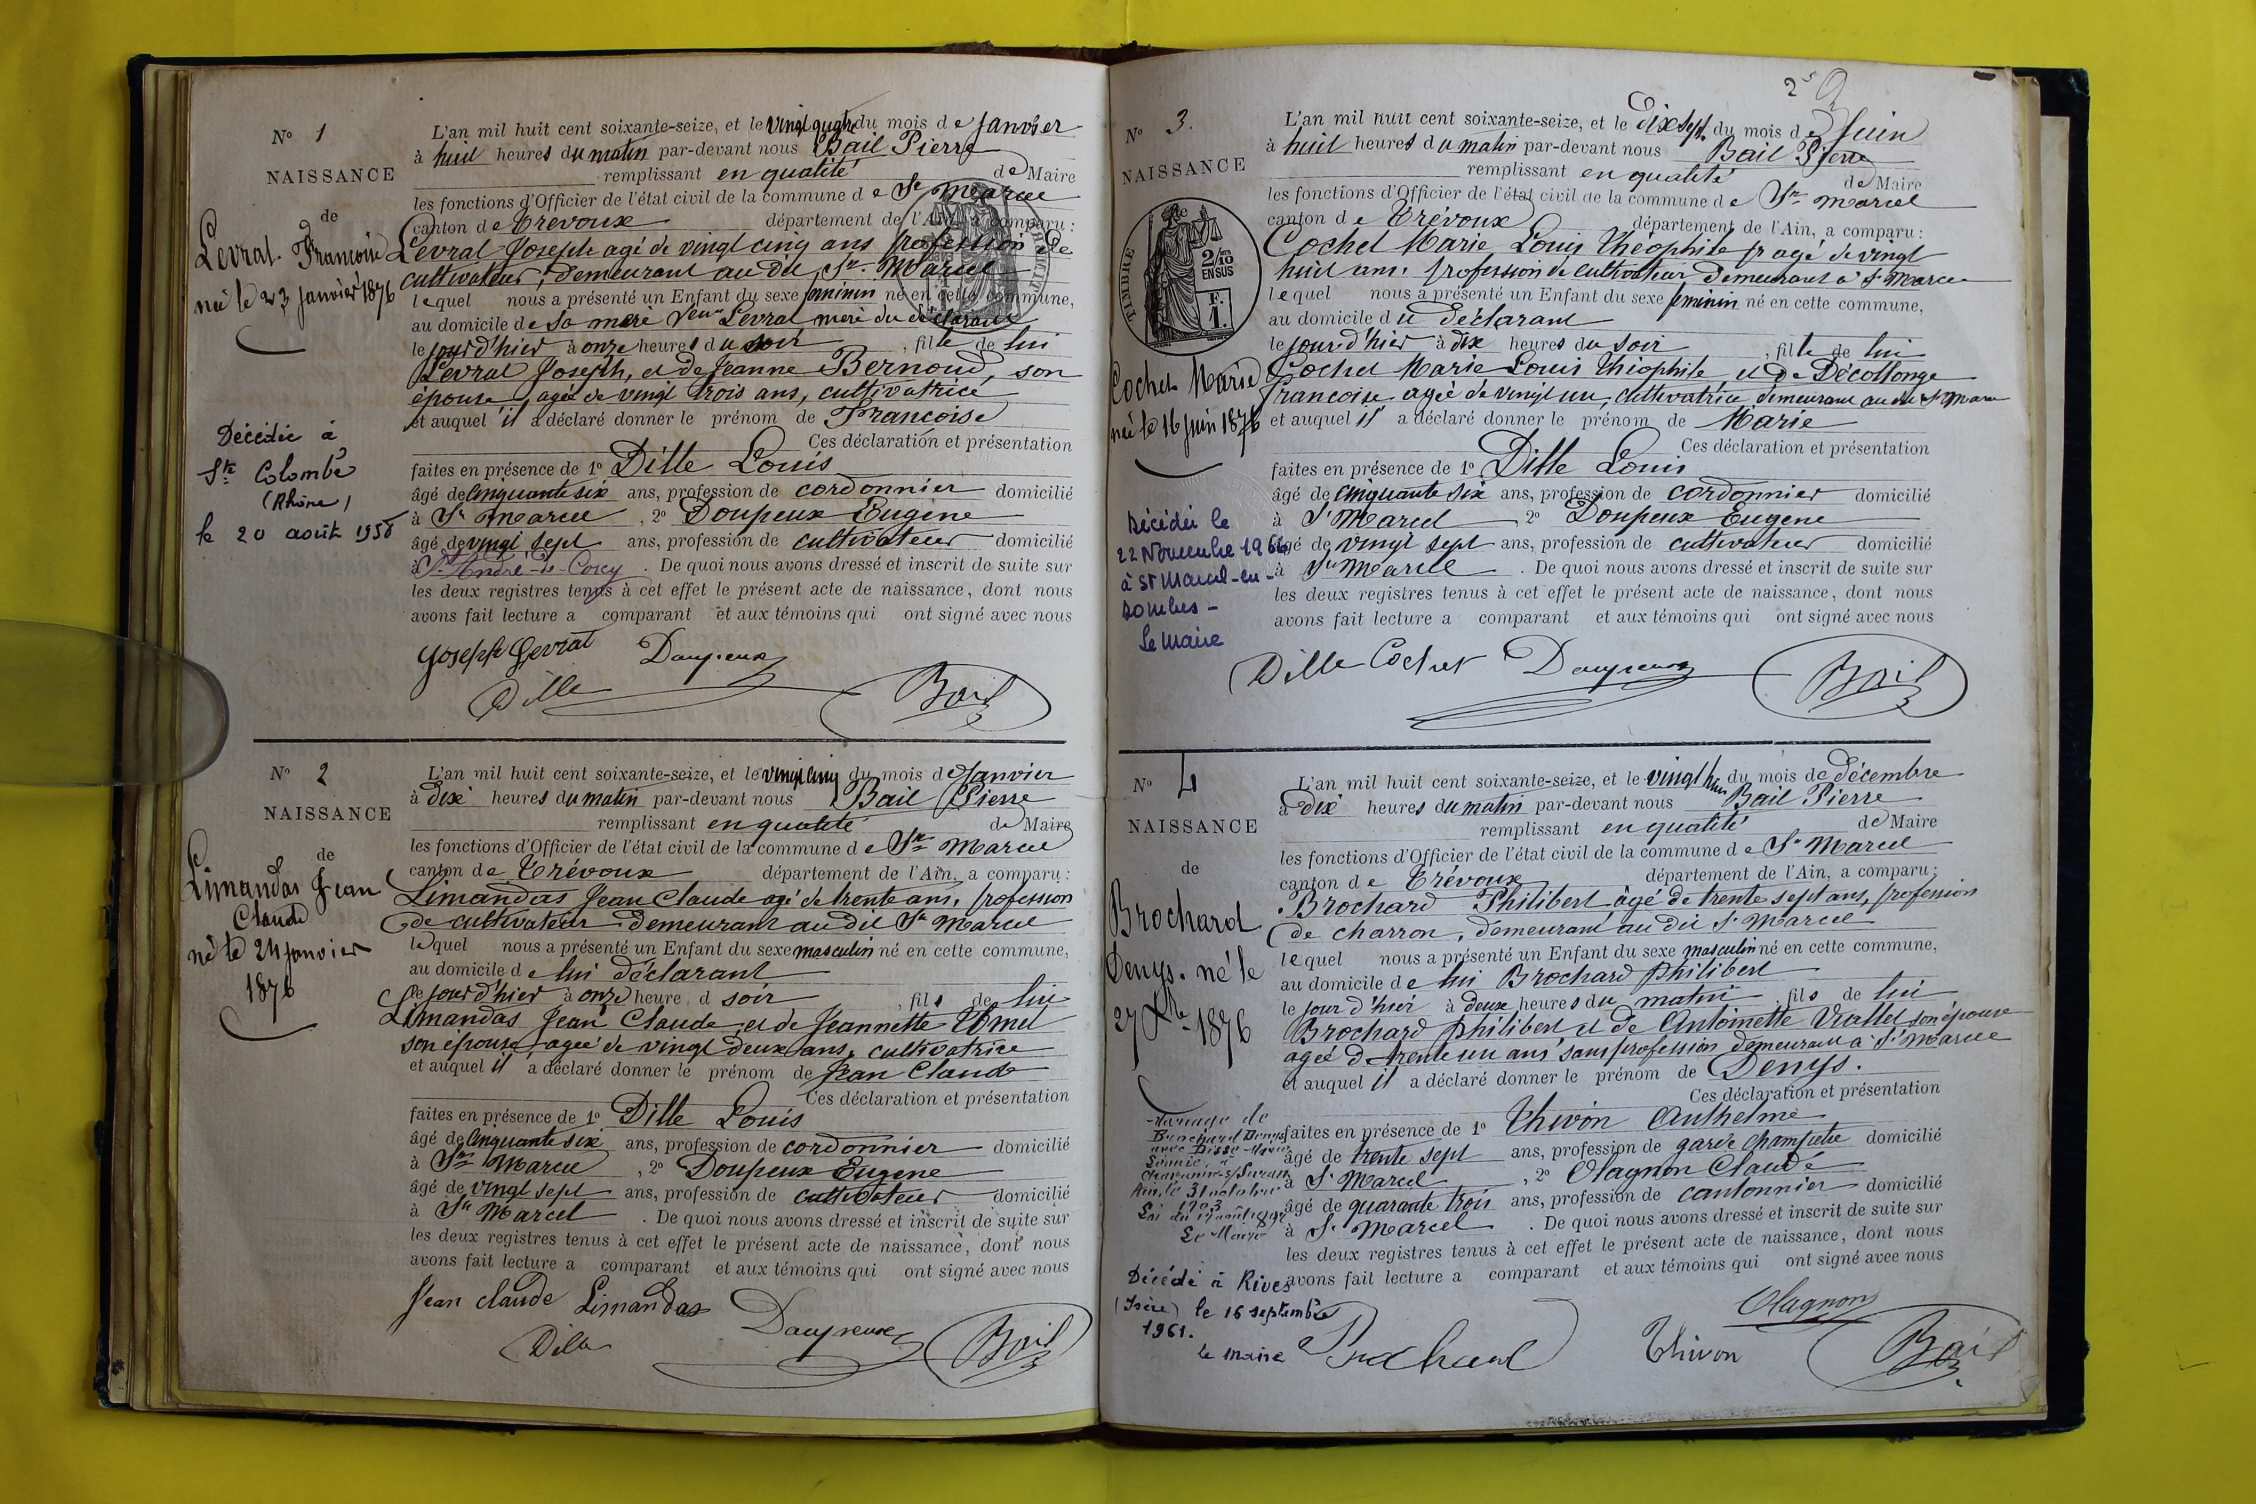 N° 1
NAISSANCE
de
Levrat Francoise
né le 23 janvier 1876
Décédée à
Ste Colombe
(Rhône)
le 20 août 1958
L'an mil huit cent soixante-seize, et le vingt quatre du mois de Janvier
à huit heures du matin par-devant nous Bail Pierre
remplissant en qualité de Maire
les fonctions d'Officier de l'état civil de la commune de St Marcel
canton de Trévoux département de l'Ain, a comparu :
Levrat Joseph agé de vingt cinq ans profession de
cultivateur, demeurant au dit St Marcel
lequel nous a présenté un Enfant du sexe feminin né en cette commune,
au domicile de sa mère Veuve Levrat mère du déclarant
le jour d'hier à onze heures du soir, fille de lui
Levrat Joseph, et de Jeanne Bernoud, son
épouse, agée de vingt trois ans, cultivatrice
et auquel il a déclaré donner le prénom de Francoise
Ces déclaration et présentation
faites en présence de 1° Dille Louis
âgé de cinquante six ans, profession de cordonnier domicilié
à St Marcel, 2° Doupeux Eugene
âgé de vingt sept ans, profession de cultivateur domicilié
à St André-de-Corcy. De quoi nous avons dressé et inscrit de suite sur
les deux registres tenus à cet effet le présent acte de naissance, dont nous
avons fait lecture a comparant et aux témoins qui ont signé avec nous
Joseph Levrat Doupeux
Dille Bail
N° 2
NAISSANCE
de
Limandas Jean
Claude
né le 24 janvier
1876
L'an mil huit cent soixante-seize, et le vingt cinq du mois de Janvier
à dix heures du matin par-devant nous Bail Pierre
remplissant en qualité de Maire
les fonctions d'Officier de l'état civil de la commune de St Marcel
canton de Trévoux département de l'Ain, a comparu :
Limandas Jean Claude agé de trente ans, profession
de cultivateur demeurant au dit St Marcel
lequel nous a présenté un Enfant du sexe masculin né en cette commune,
au domicile de lui déclarant
le jour d'hier à onze heure d soir, fils de lui
Limandas Jean Claude et de Jeannette
son épouse agée de vingt deux ans, cultivatrice
et auquel il a déclaré donner le prénom de Jean Claude
Ces déclaration et présentation
faites en présence de 1° Dille Louis
âgé de cinquante six ans, profession de cordonnier domicilié
à St Marcel, 2° Doupeux Eugene
âgé de vingt sept ans, profession de cultivateur domicilié
à St Marcel. De quoi nous avons dressé et inscrit de suite sur
les deux registres tenus à cet effet le présent acte de naissance, dont nous
avons fait lecture a comparant et aux témoins qui ont signé avec nous
Jean Claude Limandas Doupeux
Dille Bail
2
N° 3.
NAISSANCE
de
TIMBRE
2/10
EN SUS
F.
1.
Cochet Marie
né le 16 juin 1876
Décédée le
22 Novembre 1966
à St Marcel-en-
Dombes -
Le Maire
L'an mil huit cent soixante-seize, et le dix sept du mois de Juin
à huit heures du matin par-devant nous Bail Pierre
remplissant en qualité de Maire
les fonctions d'Officier de l'état civil de la commune de St Marcel
canton de Trévoux département de l'Ain, a comparu :
Cochet Marie Louis Théophile agé de vingt
huit ans, profession de cultivateur demeurant à St Marcel
lequel nous a présenté un Enfant du sexe feminin né en cette commune,
au domicile du déclarant
le jour d'hier à dix heures du soir, fille de lui
Cochet Marie Louis Théophile et de Décollonge
Francoise agée de vingt un, cultivatrice demeurant au dit St Marcel
et auquel il a déclaré donner le prénom de Marie
Ces déclaration et présentation
faites en présence de 1° Dille Louis
âgé de cinquante six ans, profession de cordonnier domicilié
à St Marcel 2° Doupeux Eugene
âgé de vingt sept ans, profession de cultivateur domicilié
à St Marcel. De quoi nous avons dressé et inscrit de suite sur
les deux registres tenus à cet effet le présent acte de naissance, dont nous
avons fait lecture a comparant et aux témoins qui ont signé avec nous
Dille Cochet Doupeux Bail
N° 4
NAISSANCE
de
Brochard
Denys. né le
27 Xbre 1876
Mariage de
Brochard Denys
31 octobre
1903
Loi du 17 août 1897
Le Maire
Décédé à Rives
(Isère) le 16 septembre
1961.
le maire
L'an mil huit cent soixante-seize, et le vingt huit du mois de décembre
à dix heures du matin par-devant nous Bail Pierre
remplissant en qualité de Maire
les fonctions d'Officier de l'état civil de la commune de St Marcel
canton de Trévoux département de l'Ain, a comparu :
Brochard Philibert âgé de trente sept ans, profession
de charron, demeurant au dit St Marcel
lequel nous a présenté un Enfant du sexe masculin né en cette commune,
au domicile de lui Brochard Philibert
le jour d'hier à deux heures du matin, fils de lui
Brochard Philibert et de Antoinette son épouse
agée d trente un ans sans profession demeurant à St Marcel
et auquel il a déclaré donner le prénom de Denys.
Ces déclaration et présentation
faites en présence de 1° Thivon Anthelme
âgé de trente sept ans, profession de garde champêtre domicilié
à St Marcel, 2° Olagnon Claude
âgé de quarante trois ans, profession de cantonnier domicilié
à St Marcel. De quoi nous avons dressé et inscrit de suite sur
les deux registres tenus à cet effet le présent acte de naissance, dont nous
avons fait lecture a comparant et aux témoins qui ont signé avec nous
Olagnon
Brochard Thivon Bail